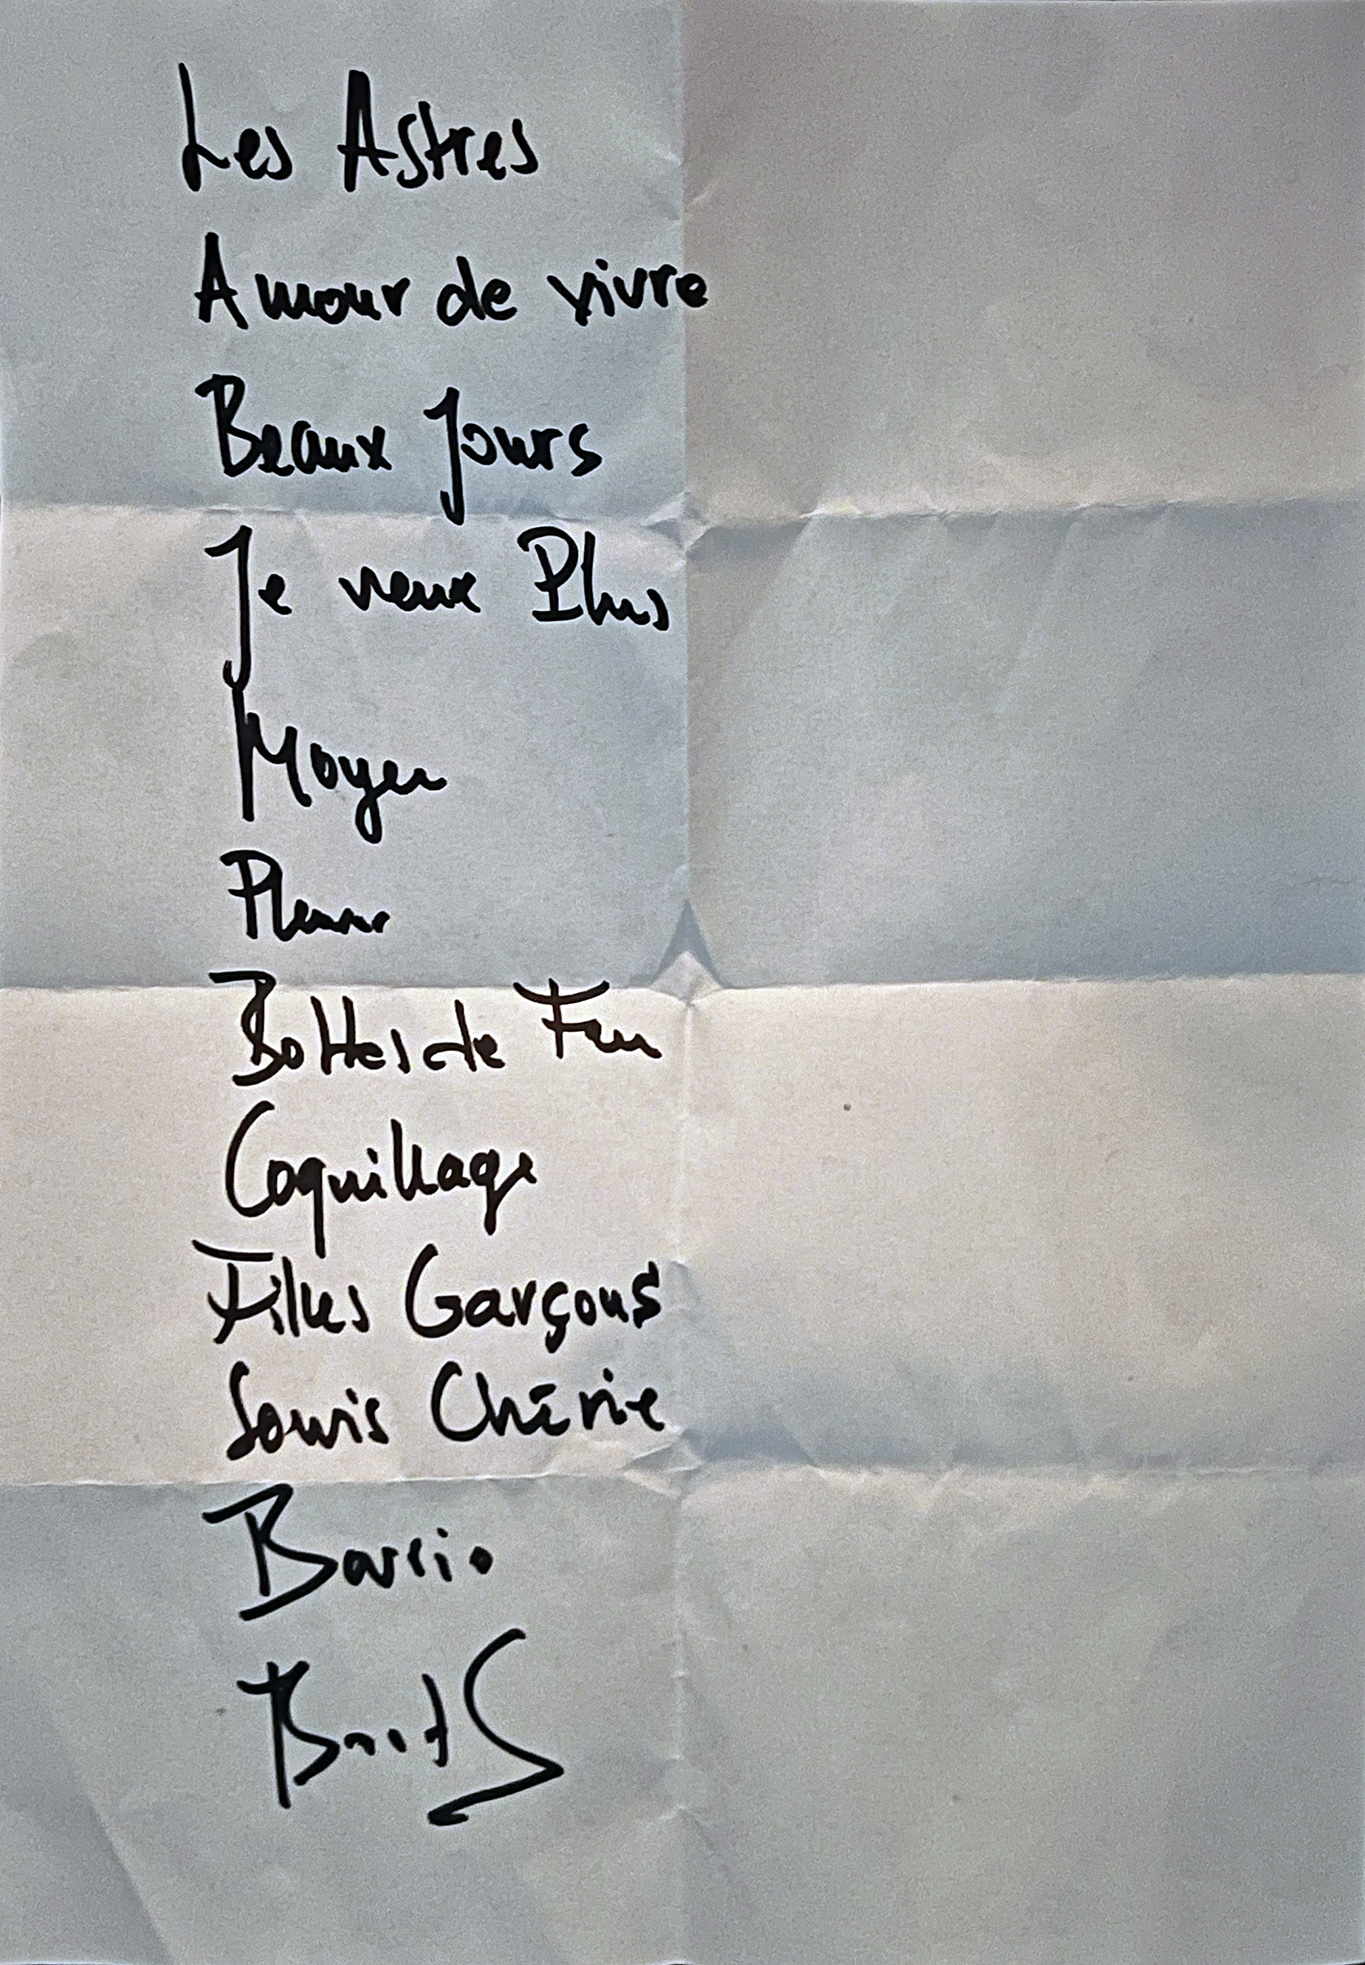 Les Astres
Amour de vivre
Beaux Jours
Je veux Plus
Moyen
Pleurer
Bottes de Feu
Coquillage
Filles Garçons
Souris Chérie
Barrio